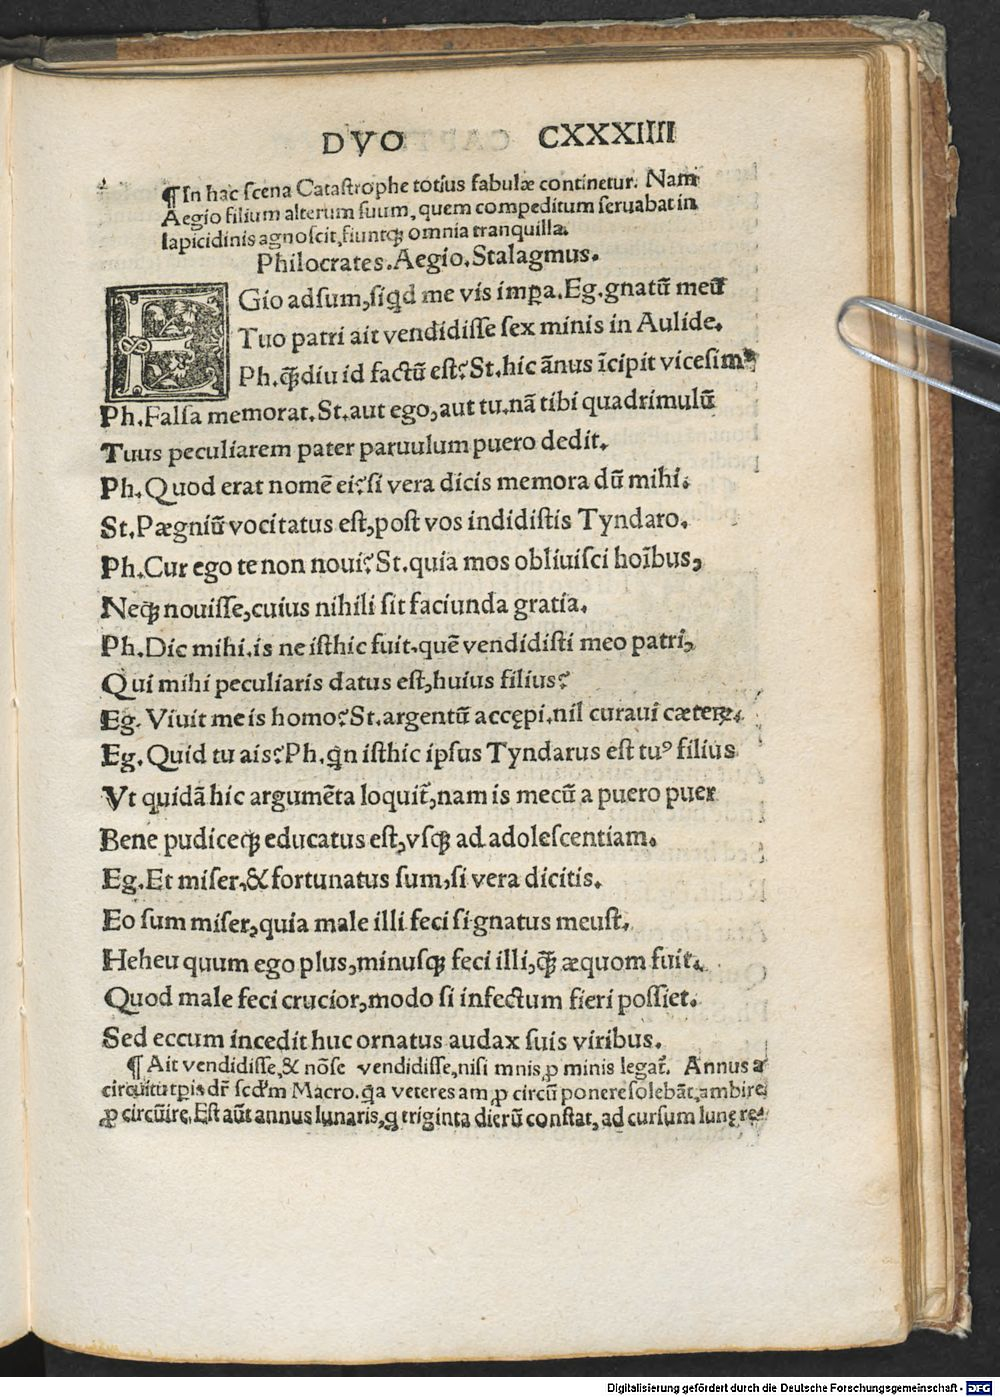 DVO CXXXIIII
¶In hac scena Catastrophe totius fabulæ continetur. Nam
Aegio filium alterum suum, quem compeditum seruabat in
lapicidinis agnoscit, fiuntqȝ omnia tranquilla.
Philocrates. Aegio. Stalagmus.
EGio adsum, siqd me vis impꝑa. Eg. gnatū meū
Tuo patri ait vendidisse sex minis in Aulide.
Ph. q̄diu id factū est? St. hic ānus īcipit vicesimꝰ
Ph. Falsa memorat. St. aut ego, aut tu. nā tibi quadrimulū
Tuus peculiarem pater paruulum puero dedit.
Ph. Quod erat nomē ei? si vera dicis memora dū mihi.
St. Pægniū vocitatus est, post vos indidistis Tyndaro.
Ph. Cur ego te non noui? St. quia mos obliuisci hoībus,
Neqȝ nouisse, cuius nihili sit faciunda gratia.
Ph. Dic mihi. is ne isthic fuit. quē vendidisti meo patri,
Qui mihi peculiaris datus est, huius filius?
Eg. Viuit me is homo? St. argentū accępi. nil curaui cæteꝝ.
Eg. Quid tu ais? Ph. qn isthic ipsus Tyndarus est tuꝰ filius
Vt quidā hic argumēta loquit̄, nam is mecū a puero puer
Bene pudiceqȝ educatus est, vsqȝ ad adolescentiam.
Eg. Et miser, & fortunatus sum, si vera dicitis.
Eo sum miser, quia male illi feci si gnatus meust.
Heheu quum ego plus, minusqȝ feci illi, q̄ æquom fuit.
Quod male feci crucior, modo si infectum fieri possiet.
Sed eccum incedit huc ornatus audax suis viribus.
¶ Ait vendidisse, & nōse vendidisse, nisi mnis ꝓ minis legat̄. Annus a
circuitu tꝑis dr̄ scd̓m Macro. qa veteres am ꝓ circū ponere solebāt, ambire
ꝓ circūire. Est aūt annus lunaris, q triginta dierū constat, ad cursum lunę re-
Digitalisierung gefördert durch die Deutsche Forschungsgemeinschaft - DFG